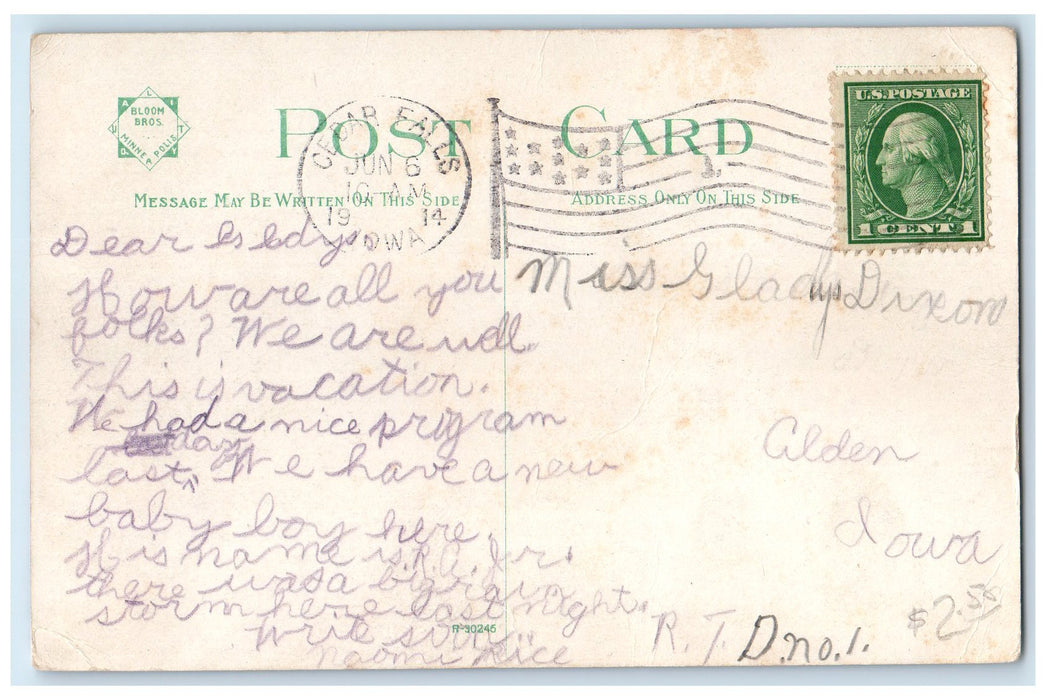 BLOOM
BROS.
MINNEAPOLIS
POST CARD
CEDAR FALLS
JUN 6
10 AM
19 14
IOWA
U.S. POSTAGE
1 CENT 1
MESSAGE MAY BE WRITTEN ON THIS SIDE
ADDRESS ONLY ON THIS SIDE
Dear Gladys,
How are all you
folks? We are well.
This is vacation.
We had a nice program
last day We have a new
baby boy here.
His name is R.A. Jr.
there was a big rain
storm here last night.
Write soon
Naomi Rice
R-30245
Miss Gladys Dixon
Alden
Iowa
R.F.D. no. 1.
$2.50